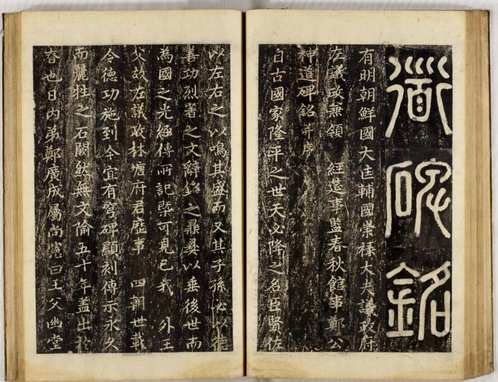 道碑銘
有明朝鮮國大匡輔國崇祿大夫議政府
左議政兼領 經筵事監春秋館事鄭公
神道碑銘并序
自古國家隆平之世天必降之名臣賢佐
以左右之以鳴其盛而又其子孫必以德
善功烈著之文辭銘之鼎彝以垂後世而
為國之光經傳所記 可見已我 外王
父故左議政林塘府君歷事 四朝世載
令德功施到今宜有穹碑顯刻傳示永久
而麗牲之石闕然無文 五十年蓋出於
也日內弟鄭廣成屬尚憲曰王父幽堂